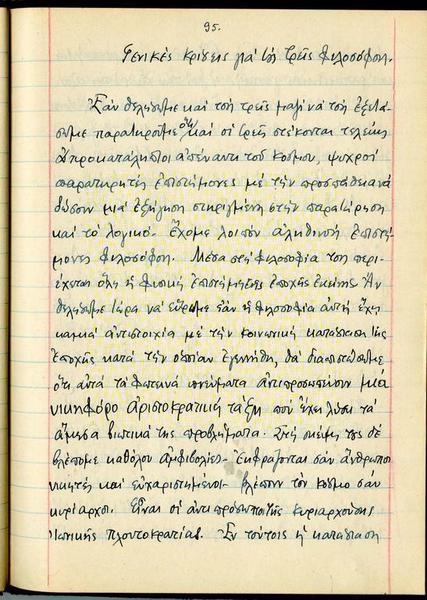 95.
Γενικές κρίσεις γιά τούς τρεῖς φιλοσόφους.
Ἐάν θελήσωμε καί τούς τρεῖς μαζί νά τούς ἐξετά-
σωμε παρατηροῦμε ὅτι καί οἱ τρεῖς στέκονται τελείως
ἀπροκατάληπτοι ἀπέναντι τοῦ κόσμου, ψυχροί
παρατηρητές ἐπιστήμονες μέ τήν προσπάθεια νά
δώσουν μιά ἐξήγηση στηριγμένη στήν παρατήρηση
καί τό λογικό. Ἔχομε λοιπόν ἀληθινούς ἐπιστή-
μονες φιλοσόφους. Μέσα στή φιλοσοφία τους περι-
έχεται ὅλη ἡ φυσική ἐπιστήμη τῆς ἐποχῆς ἐκείνης. Ἄν
θελήσωμε τώρα νά εὕρωμε ἐάν ἡ φιλοσοφία αὐτή ἔχει
καμιά ἀντιστοιχία μέ τήν κοινωνική κατάσταση τῆς
ἐποχῆς κατά τήν ὁποίαν ἐγεννήθη, θά διαπιστώσωμε
ὅτι αὐτά τά φωτεινά πνεύματα ἀντιπροσωπεύουν μιά
νικηφόρο ἀριστοκρατική τάξη πού ἔχει λύσει τά
ἄμεσα βιωτικά της προβλήματα. Στή σκέψη τους δέ
βλέπομε καθόλου ἀμφιβολίες. Ἐκφράζονται σάν ἄνθρωποι
νικητές καί εὐχαριστημένοι. Βλέπουν τόν κόσμο σάν
κυρίαρχοι. Εἶναι οἱ ἀντιπρόσωποι τῆς κυριαρχούσης
Ἰωνικῆς πλουτοκρατίας. Ἐν τούτοις ἡ κατάσταση